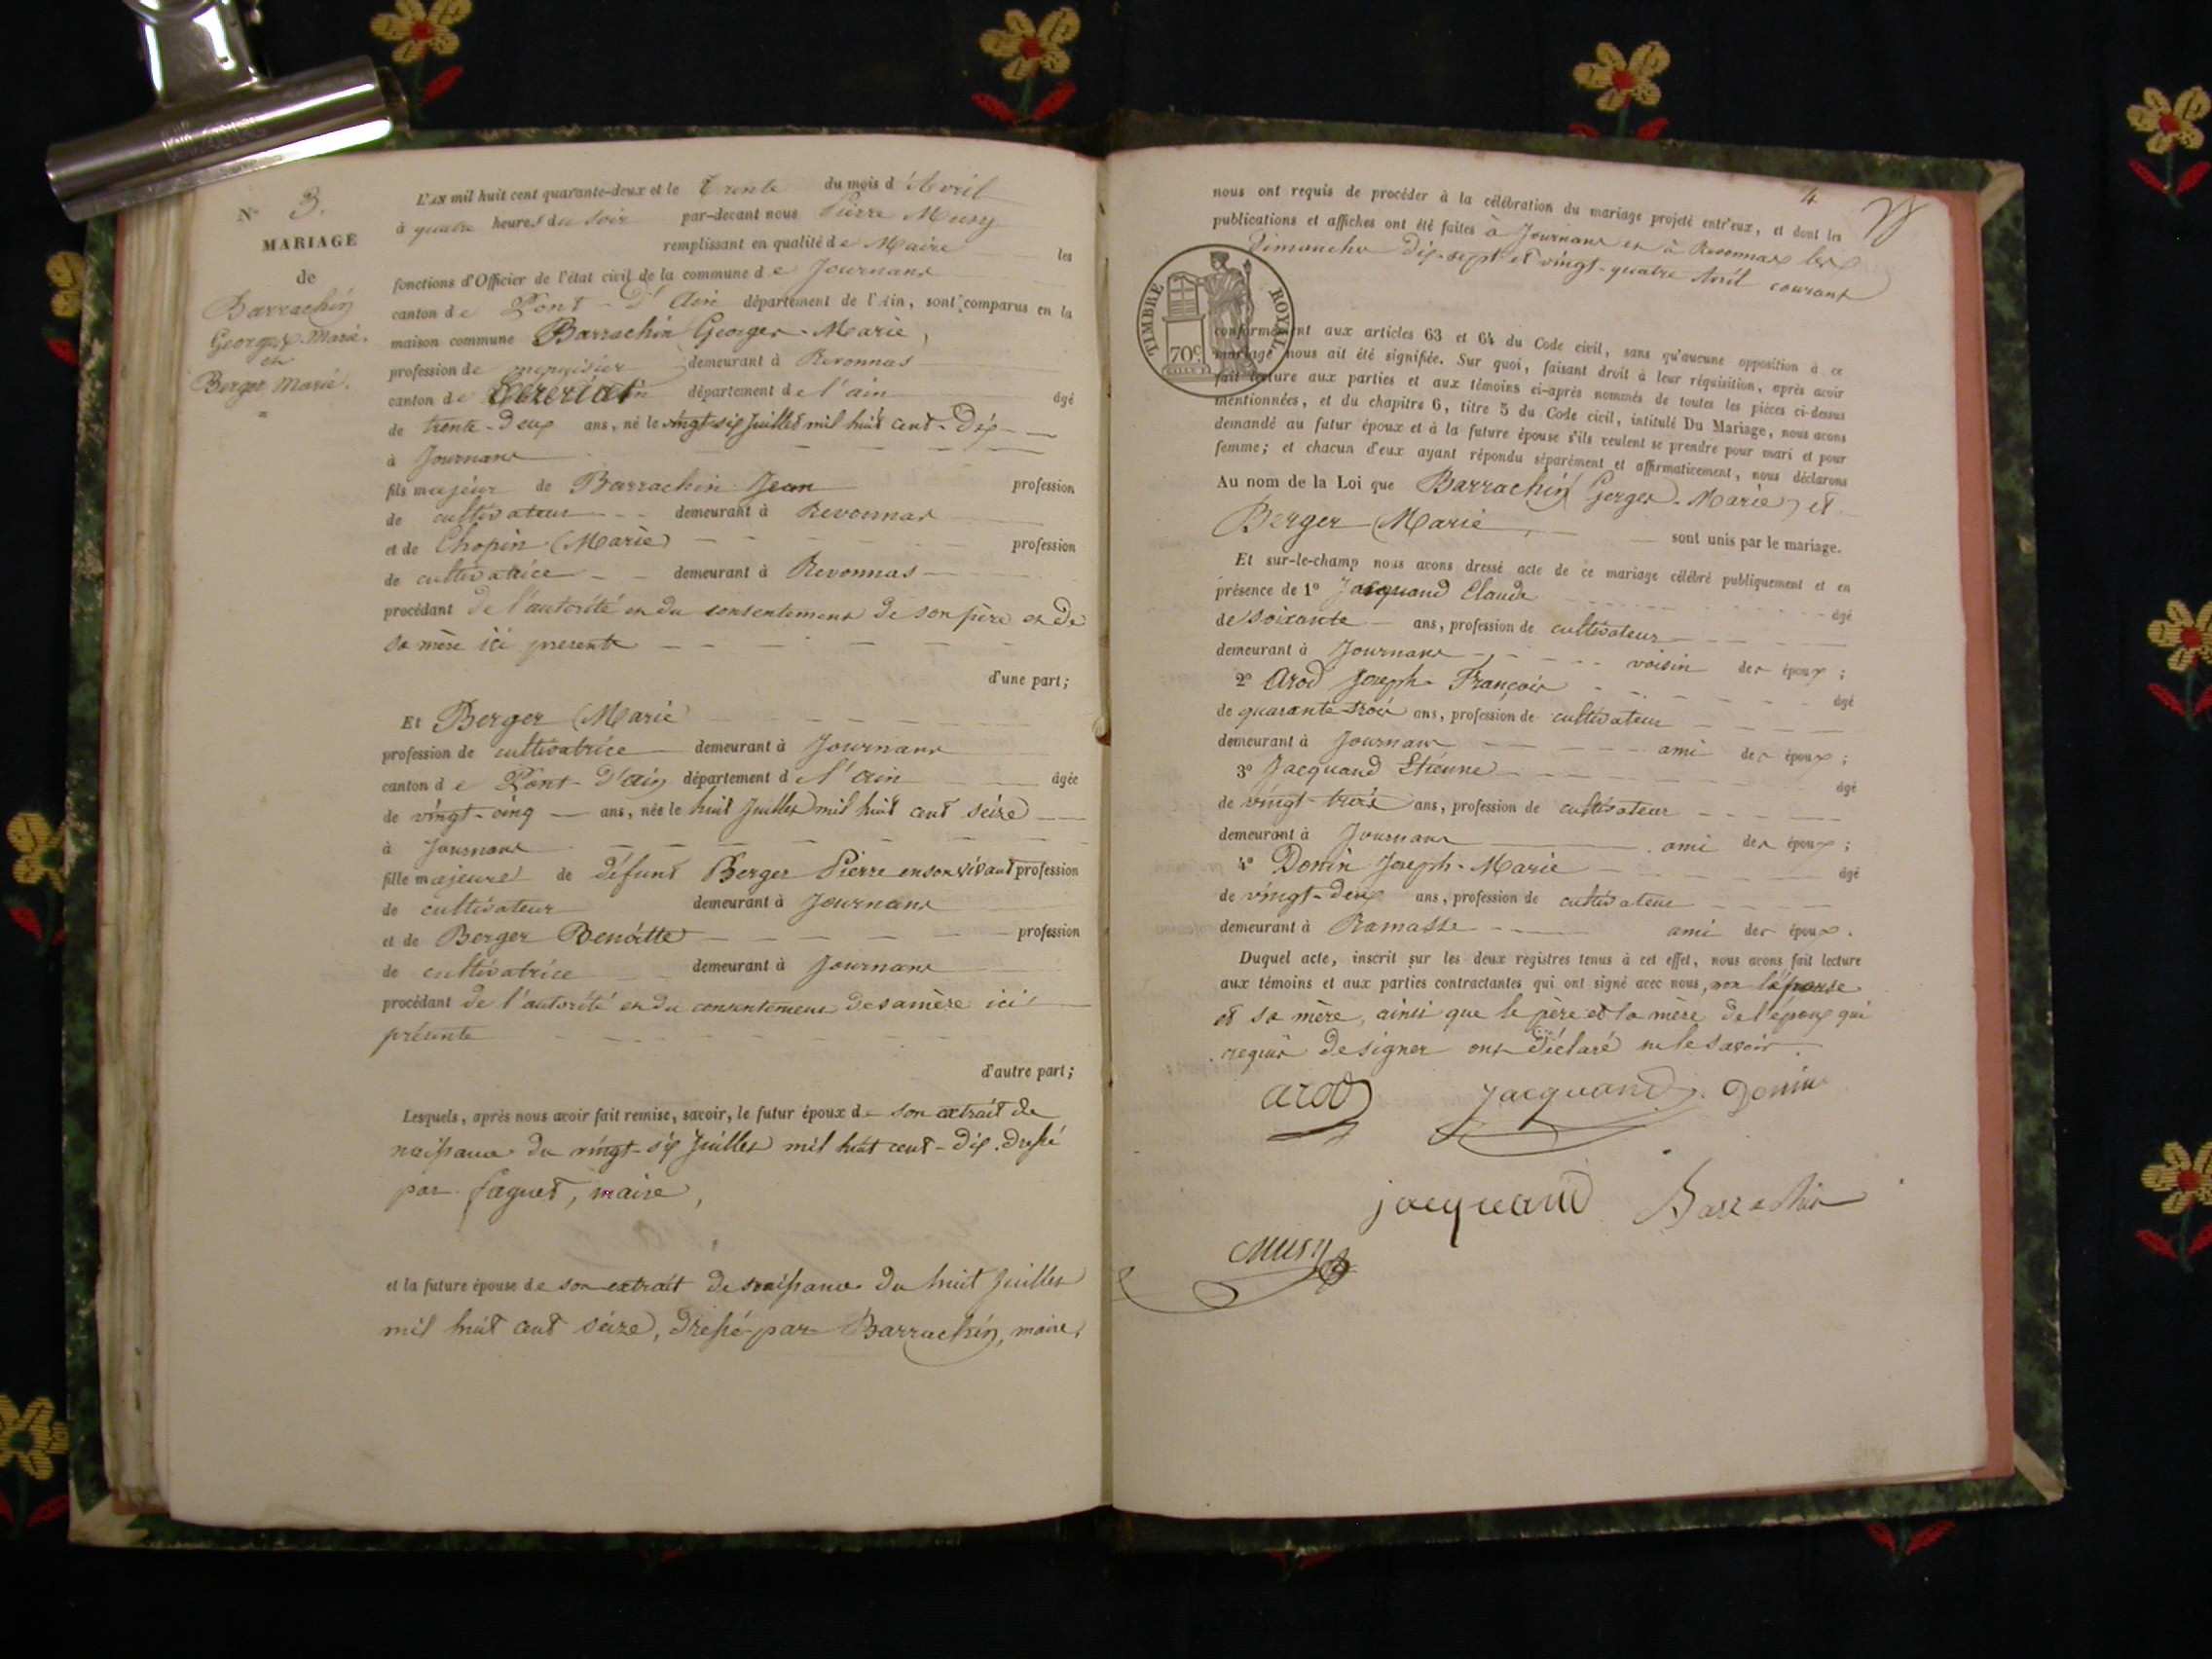 N° 3.
MARIAGE
de
Barrachin
Georges Marie.
et
Berger Marie.
L'AN mil huit cent quarante-deux et le Trente du mois d'Avril
à quatre heures du soir par-devant nous Pierre Musy
remplissant en qualité de Maire les
fonctions d'Officier de l'état civil de la commune de Journans
canton de Pont-d'Ain département de l'Ain, sont comparus en la
maison commune Barrachin Georges-Marie,
profession de menuisier demeurant à Revonnas
canton de Ceyzériat département de l'ain âgé
de trente-deux ans, né le vingt-six Juillet mil huit cent-Dix
à Journans
fils majeur de Barrachin Jean profession
de cultivateur demeurant à Revonnas
et de Chopin (Marie) profession
de cultivatrice demeurant à Revonnas
procédant de l'autorité et du consentement de son père et de
sa mère ici presents
d'une part;
Et Berger (Marie
profession de cultivatrice demeurant à Journans
canton de Pont-d'ain département de l'ain âgée
de vingt-cinq ans, née le huit Juillet mil huit cent seize
à Journans
fille majeure de défunt Berger Pierre en son vivant profession
de cultivateur demeurant à Journans
et de Berger Benoitte profession
de cultivatrice demeurant à Journans
procédant de l'autorité et du consentement de sa mère ici
présente
d'autre part;
Lesquels, après nous avoir fait remise, savoir, le futur époux de son extrait de
naissance du vingt-six Juillet mil huit cent-dix. dressé
par faguet, maire,
et la future épouse de son extrait de naissance du huit Juillet
mil huit cent seize, dressé par Barrachin, maire,
4
nous ont requis de procéder à la célébration du mariage projeté entr'eux, et dont les
publications et affiches ont été faites à Journans et à Revonnas les
Dimanches dix-sept et vingt-quatre Avril courant
TIMBRE ROYAL
70c
conformément aux articles 63 et 64 du Code civil, sans qu'aucune opposition à ce
mariage nous ait été signifiée. Sur quoi, faisant droit à leur réquisition, après avoir
fait lecture aux parties et aux témoins ci-après nommés de toutes les pièces ci-dessus
mentionnées, et du chapitre 6, titre 5 du Code civil, intitulé Du Mariage, nous avons
demandé au futur époux et à la future épouse s'ils veulent se prendre pour mari et pour
femme; et chacun d'eux ayant répondu séparément et affirmativement, nous déclarons
Au nom de la Loi que Barrachin Gorges-Marie, et
Berger (Marie sont unis par le mariage.
Et sur-le-champ nous avons dressé acte de ce mariage célébré publiquement et en
présence de 1° Jacquand Claude âgé
de soixante ans, profession de cultivateur
demeurant à Journans voisin des époux;
2° Arod Joseph-François âgé
de quarante-trois ans, profession de cultivateur
demeurant à Journans ami des époux;
3° Jacquand Etienne âgé
de vingt-trois ans, profession de cultivateur
demeurant à Journans ami des époux;
4° Donin Joseph-Marie âgé
de vingt-deux ans, profession de cultivateur
demeurant à Ramasse ami des époux.
Duquel acte, inscrit sur les deux régistres tenus à cet effet, nous avons fait lecture
aux témoins et aux parties contractantes qui ont signé avec nous, non l'épouse
et sa mère, ainsi que le père et la mère de l'époux qui
requis de signer ont déclaré ne le savoir.
arod Jacquand Donin
jacquand Barrachin
Musy